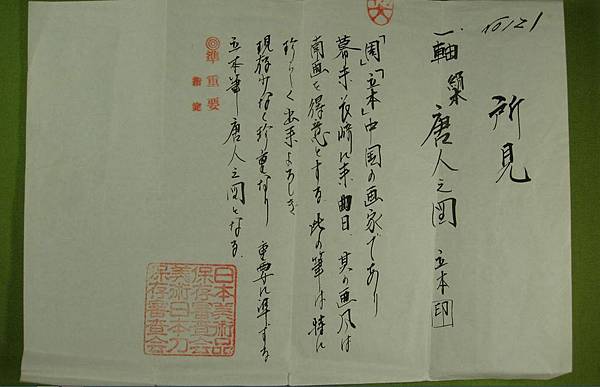 No 121
所見
一軸 絹 唐人之図 五本 印
「周」「五本」中国の画家であり
幕末長崎に来日、其の画風は
南画を得意とする。此の筆は特に
珍らしく出来よろしき
現存少なく珍重なり 重要に準ずる
五本筆唐人之図となる。
◎準重要
指定
日本美術品
保存審査会
美術日本刀
保存審査会